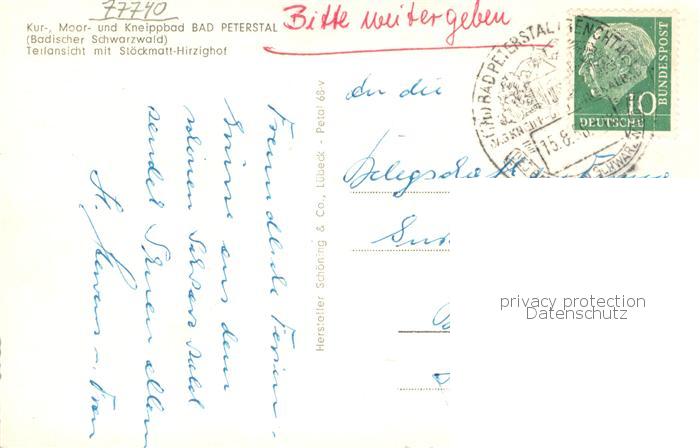 77740
Kur-, Moor- und Kneippbad BAD PETERSTAL
(Badischer Schwarzwald)
Teilansicht mit Stöckmatt-Hirzighof
Bitte weitergeben
BAD PETERSTAL / RENCHTAL
15.8.
SCHWARZW
10
DEUTSCHE
BUNDESPOST
Freundliche Ferien-
Grüsse aus dem
schönen Schwarzwald
sendet Ihnen allen
Hersteller Schöning & Co., Lübeck - Petal 68-v
An die
Belegschaft
privacy protection
Datenschutz